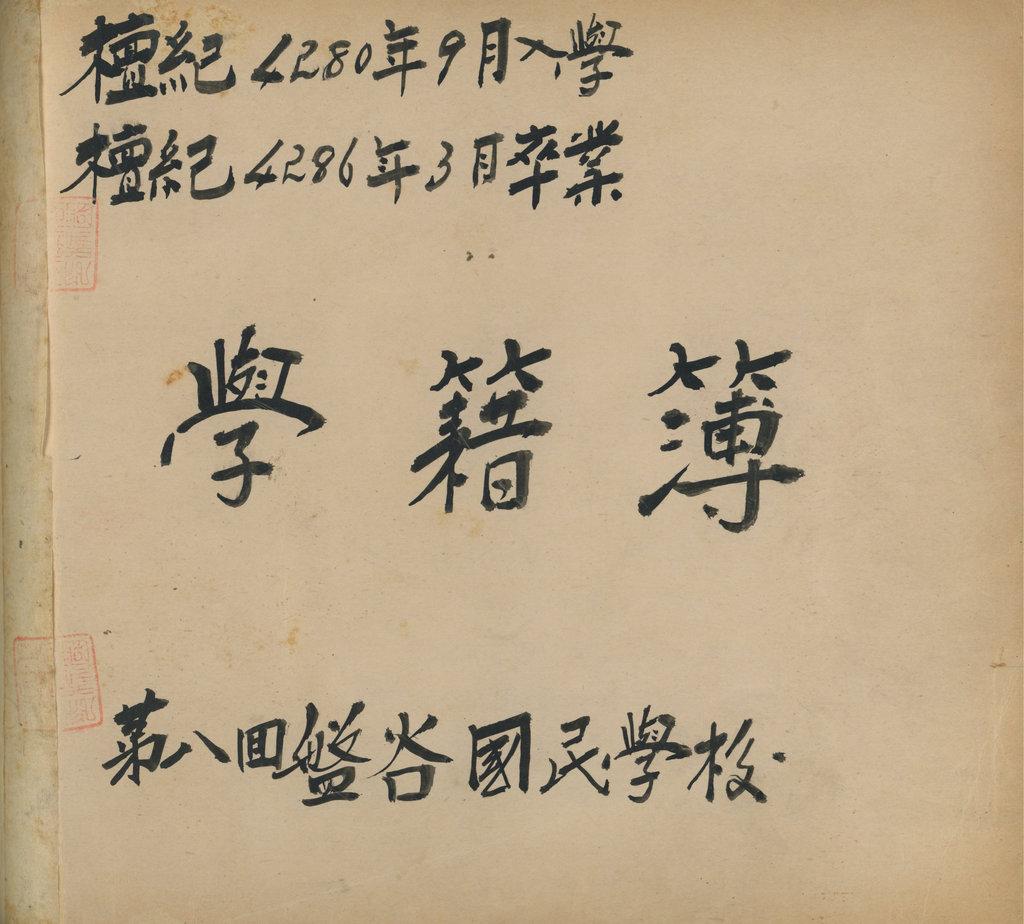 檀紀 4280年9月入學
檀紀 4286年3月卒業
學籍簿
第八回盤谷國民學校